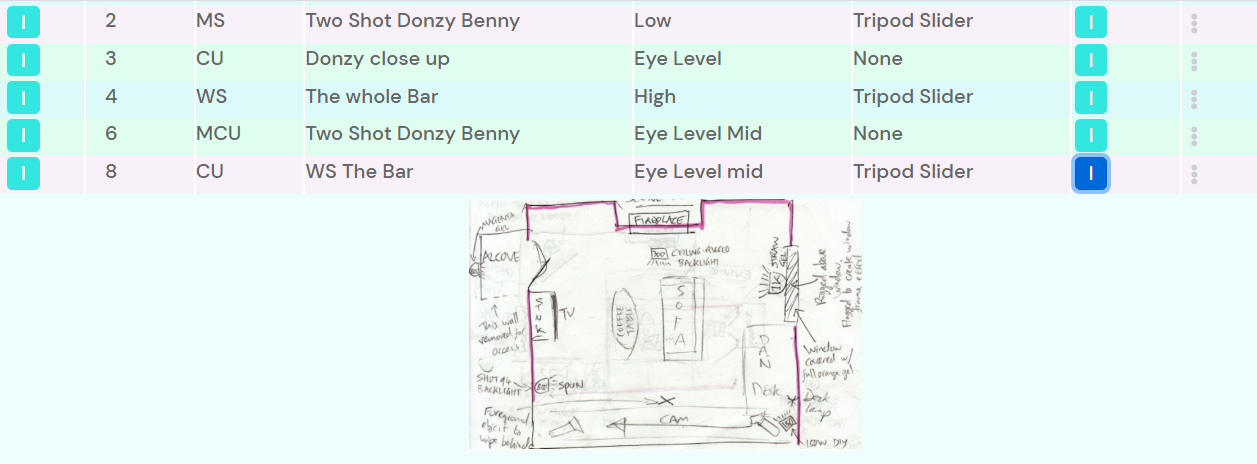 I 2 MS Two Shot Donzy Benny Low Tripod Slider I
I 3 CU Donzy close up Eye Level None I
I 4 WS The whole Bar High Tripod Slider I
I 6 MCU Two Shot Donzy Benny Eye Level Mid None I
I 8 CU WS The Bar Eye Level mid Tripod Slider I
MAGENTA GEL
FIREPLACE
ALCOVE
CEILING-RIGGED
BACKLIGHT
STRAW
GEL
1K
Rigged above
window.
Flagged to create window
frame effect
STNK
TV
COFFEE
TABLE
SOFA
This wall
removed for
access
DAN
Desk
Window
covered w/
full orange gel
SHOT 94
BACKLIGHT
SPUN
Desk
lamp
Foreground
object to
wipe behind
CAM
100W DIY